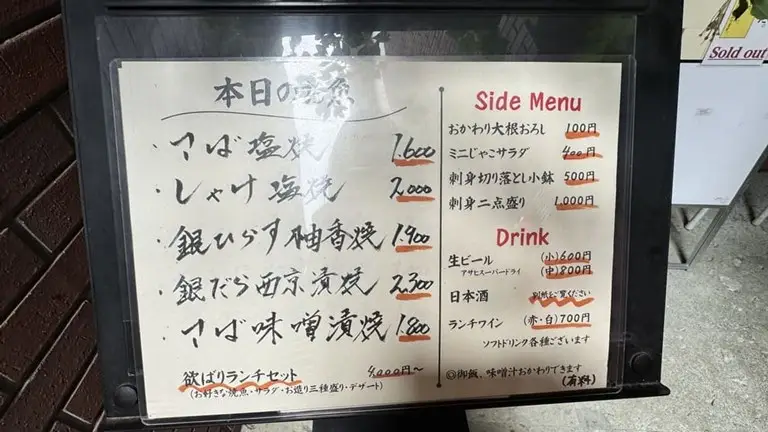 本日の焼魚
・さば塩焼 1.600
・しゃけ塩焼 2.000
・銀ひらす柚香焼 1.900
・銀だら西京漬焼 2.300
・さば味噌漬焼 1.800
欲ばりランチセット 4.000円~
(お好きな焼魚・サラダ・お造り三種盛り・デザート)
Side Menu
おかわり大根おろし 100円
ミニじゃこサラダ 400円
刺身切り落とし小鉢 500円
刺身二点盛り 1,000円
Drink
生ビール (小)600円
アサヒスーパードライ (中)800円
日本酒 別紙をご覧ください
ランチワイン (赤・白)700円
ソフトドリンク各種ございます
◎御飯、味噌汁おかわりできます
(有料)
Sold out